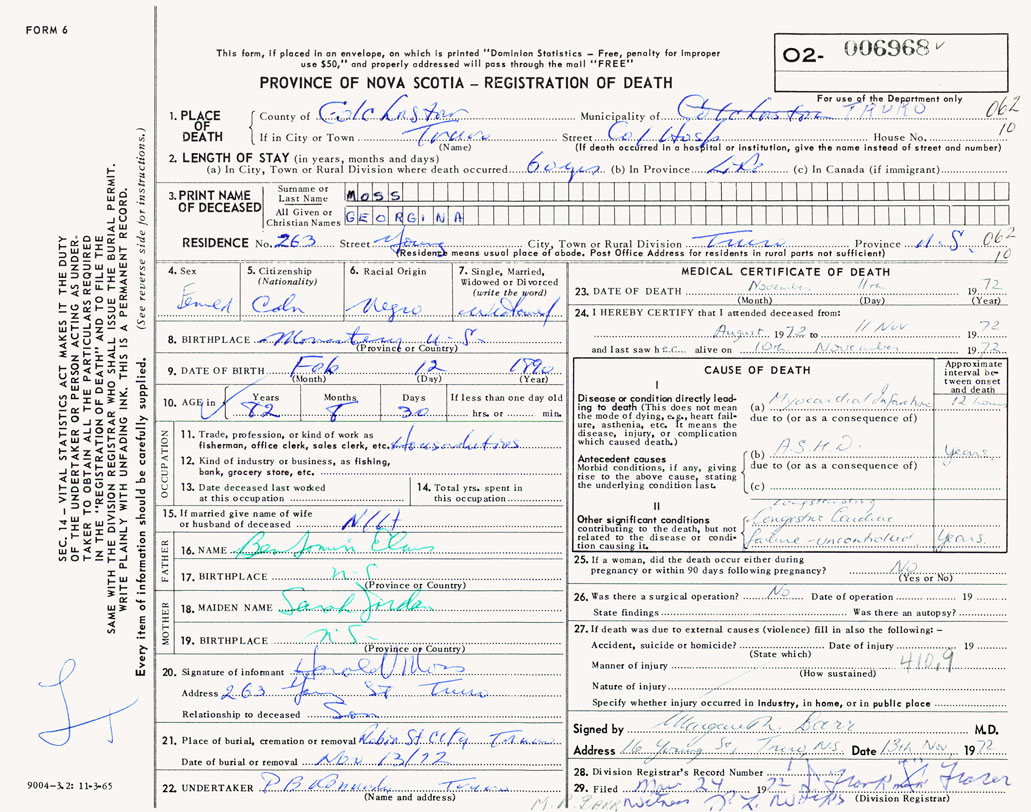 FORM 6
This form, if placed in an envelope, on which is printed "Dominion Statistics – Free, penalty for improper
use $50," and properly addressed will pass through the mail "FREE"
O2- 006968
PROVINCE OF NOVA SCOTIA – REGISTRATION OF DEATH
For use of the Department only
1. PLACE OF DEATH
County of Colchester Municipality of Colchester TRURO 062
If in City or Town Truro Street Col Hosp House No. 10
(Name) (If death occurred in a hospital or institution, give the name instead of street and number)
2. LENGTH OF STAY (in years, months and days)
(a) In City, Town or Rural Division where death occurred 60 yrs (b) In Province Life (c) In Canada (if immigrant)
3. PRINT NAME OF DECEASED
Surname or Last Name MOSS
All Given or Christian Names GEORGINA
RESIDENCE No. 263 Street Young City, Town or Rural Division Truro Province N.S. 062
(Residence means usual place of abode. Post Office Address for residents in rural parts not sufficient) 10
4. Sex
5. Citizenship (Nationality) Cdn
6. Racial Origin Negro
7. Single, Married, Widowed or Divorced (write the word) Widowed
8. BIRTHPLACE Monastery N.S.
(Province or Country)
9. DATE OF BIRTH Feb 12 1890
(Month) (Day) (Year)
10. AGE in Years Months Days If less than one day old
82 8 30 hrs. or min.
OCCUPATION
11. Trade, profession, or kind of work as
fisherman, office clerk, sales clerk, etc. Housduties
12. Kind of industry or business, as fishing,
bank, grocery store, etc.
13. Date deceased last worked
at this occupation
14. Total yrs. spent in
this occupation
15. If married give name of wife
or husband of deceased
FATHER
16. NAME Benjamin
17. BIRTHPLACE N-S
(Province or Country)
MOTHER
18. MAIDEN NAME Sarah Jordan
19. BIRTHPLACE N.S-
(Province or Country)
20. Signature of informant Harold Moss
Address 263 Young St Truro
Relationship to deceased Son
21. Place of burial, cremation or removal Robie St City Truro
Date of burial or removal Nov 13/72
22. UNDERTAKER Truro
(Name and address)
MEDICAL CERTIFICATE OF DEATH
23. DATE OF DEATH November 11th 1972
(Month) (Day) (Year)
24. I HEREBY CERTIFY that I attended deceased from:
August 1972 to 11 Nov 1972
and last saw her alive on 10th November 1972
CAUSE OF DEATH
Approximate interval between onset and death
I
Disease or condition directly leading
to death (This does not mean
the mode of dying, e.g., heart failure,
asthenia, etc. It means the
disease, injury, or complication
which caused death.)
(a) Myocardial Infarction 12 hours
due to (or as a consequence of)
Antecedent causes
Morbid conditions, if any, giving
rise to the above cause, stating
the underlying condition last.
(b) A.S.H.D. years
due to (or as a consequence of)
(c)
II
Other significant conditions
contributing to the death, but not
related to the disease or condition
causing it.
Longstanding
Congestive Cardiac
failure - uncontrolled years.
25. If a woman, did the death occur either during
pregnancy or within 90 days following pregnancy? No
(Yes or No)
26. Was there a surgical operation? No Date of operation 19
State findings Was there an autopsy?
27. If death was due to external causes (violence) fill in also the following: –
Accident, suicide or homicide? Date of injury 19
(State which)
Manner of injury 410.9
(How sustained)
Nature of injury
Specify whether injury occurred in industry, in home, or in public place
Signed by Margaret Barr M.D.
Address 16 Young St, Truro, N.S. Date 13th Nov. 1972
28. Division Registrar's Record Number
29. Filed Nov 24 1972 Fraser
(Division Registrar)
SEC. 14 – VITAL STATISTICS ACT MAKES IT THE DUTY
OF THE UNDERTAKER OR PERSON ACTING AS UNDER-
TAKER TO OBTAIN ALL THE PARTICULARS REQUIRED
IN THE "REGISTRATION OF DEATH" AND TO FILE THE
SAME WITH THE DIVISION REGISTRAR WHO SHALL ISSUE THE BURIAL PERMIT.
WRITE PLAINLY WITH UNFADING INK. THIS IS A PERMANENT RECORD.
Every item of information should be carefully supplied. (See reverse side for instructions.)
9004-3.2: 11-3-65